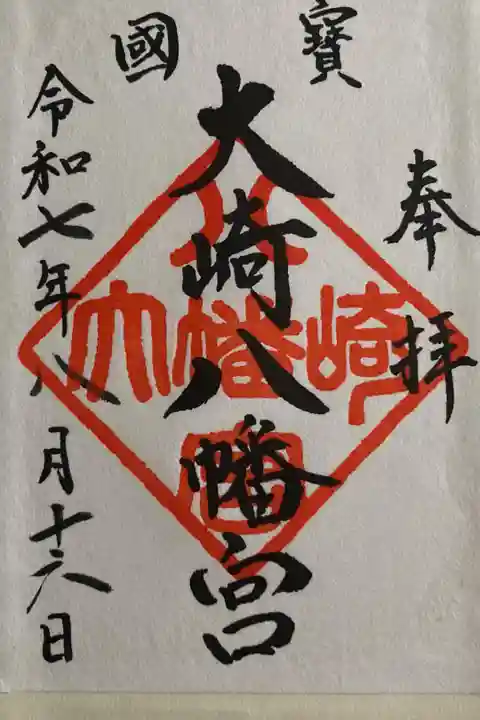 寳國
奉拝
大崎八幡宮
令和七年八月十六日
大崎八幡宮